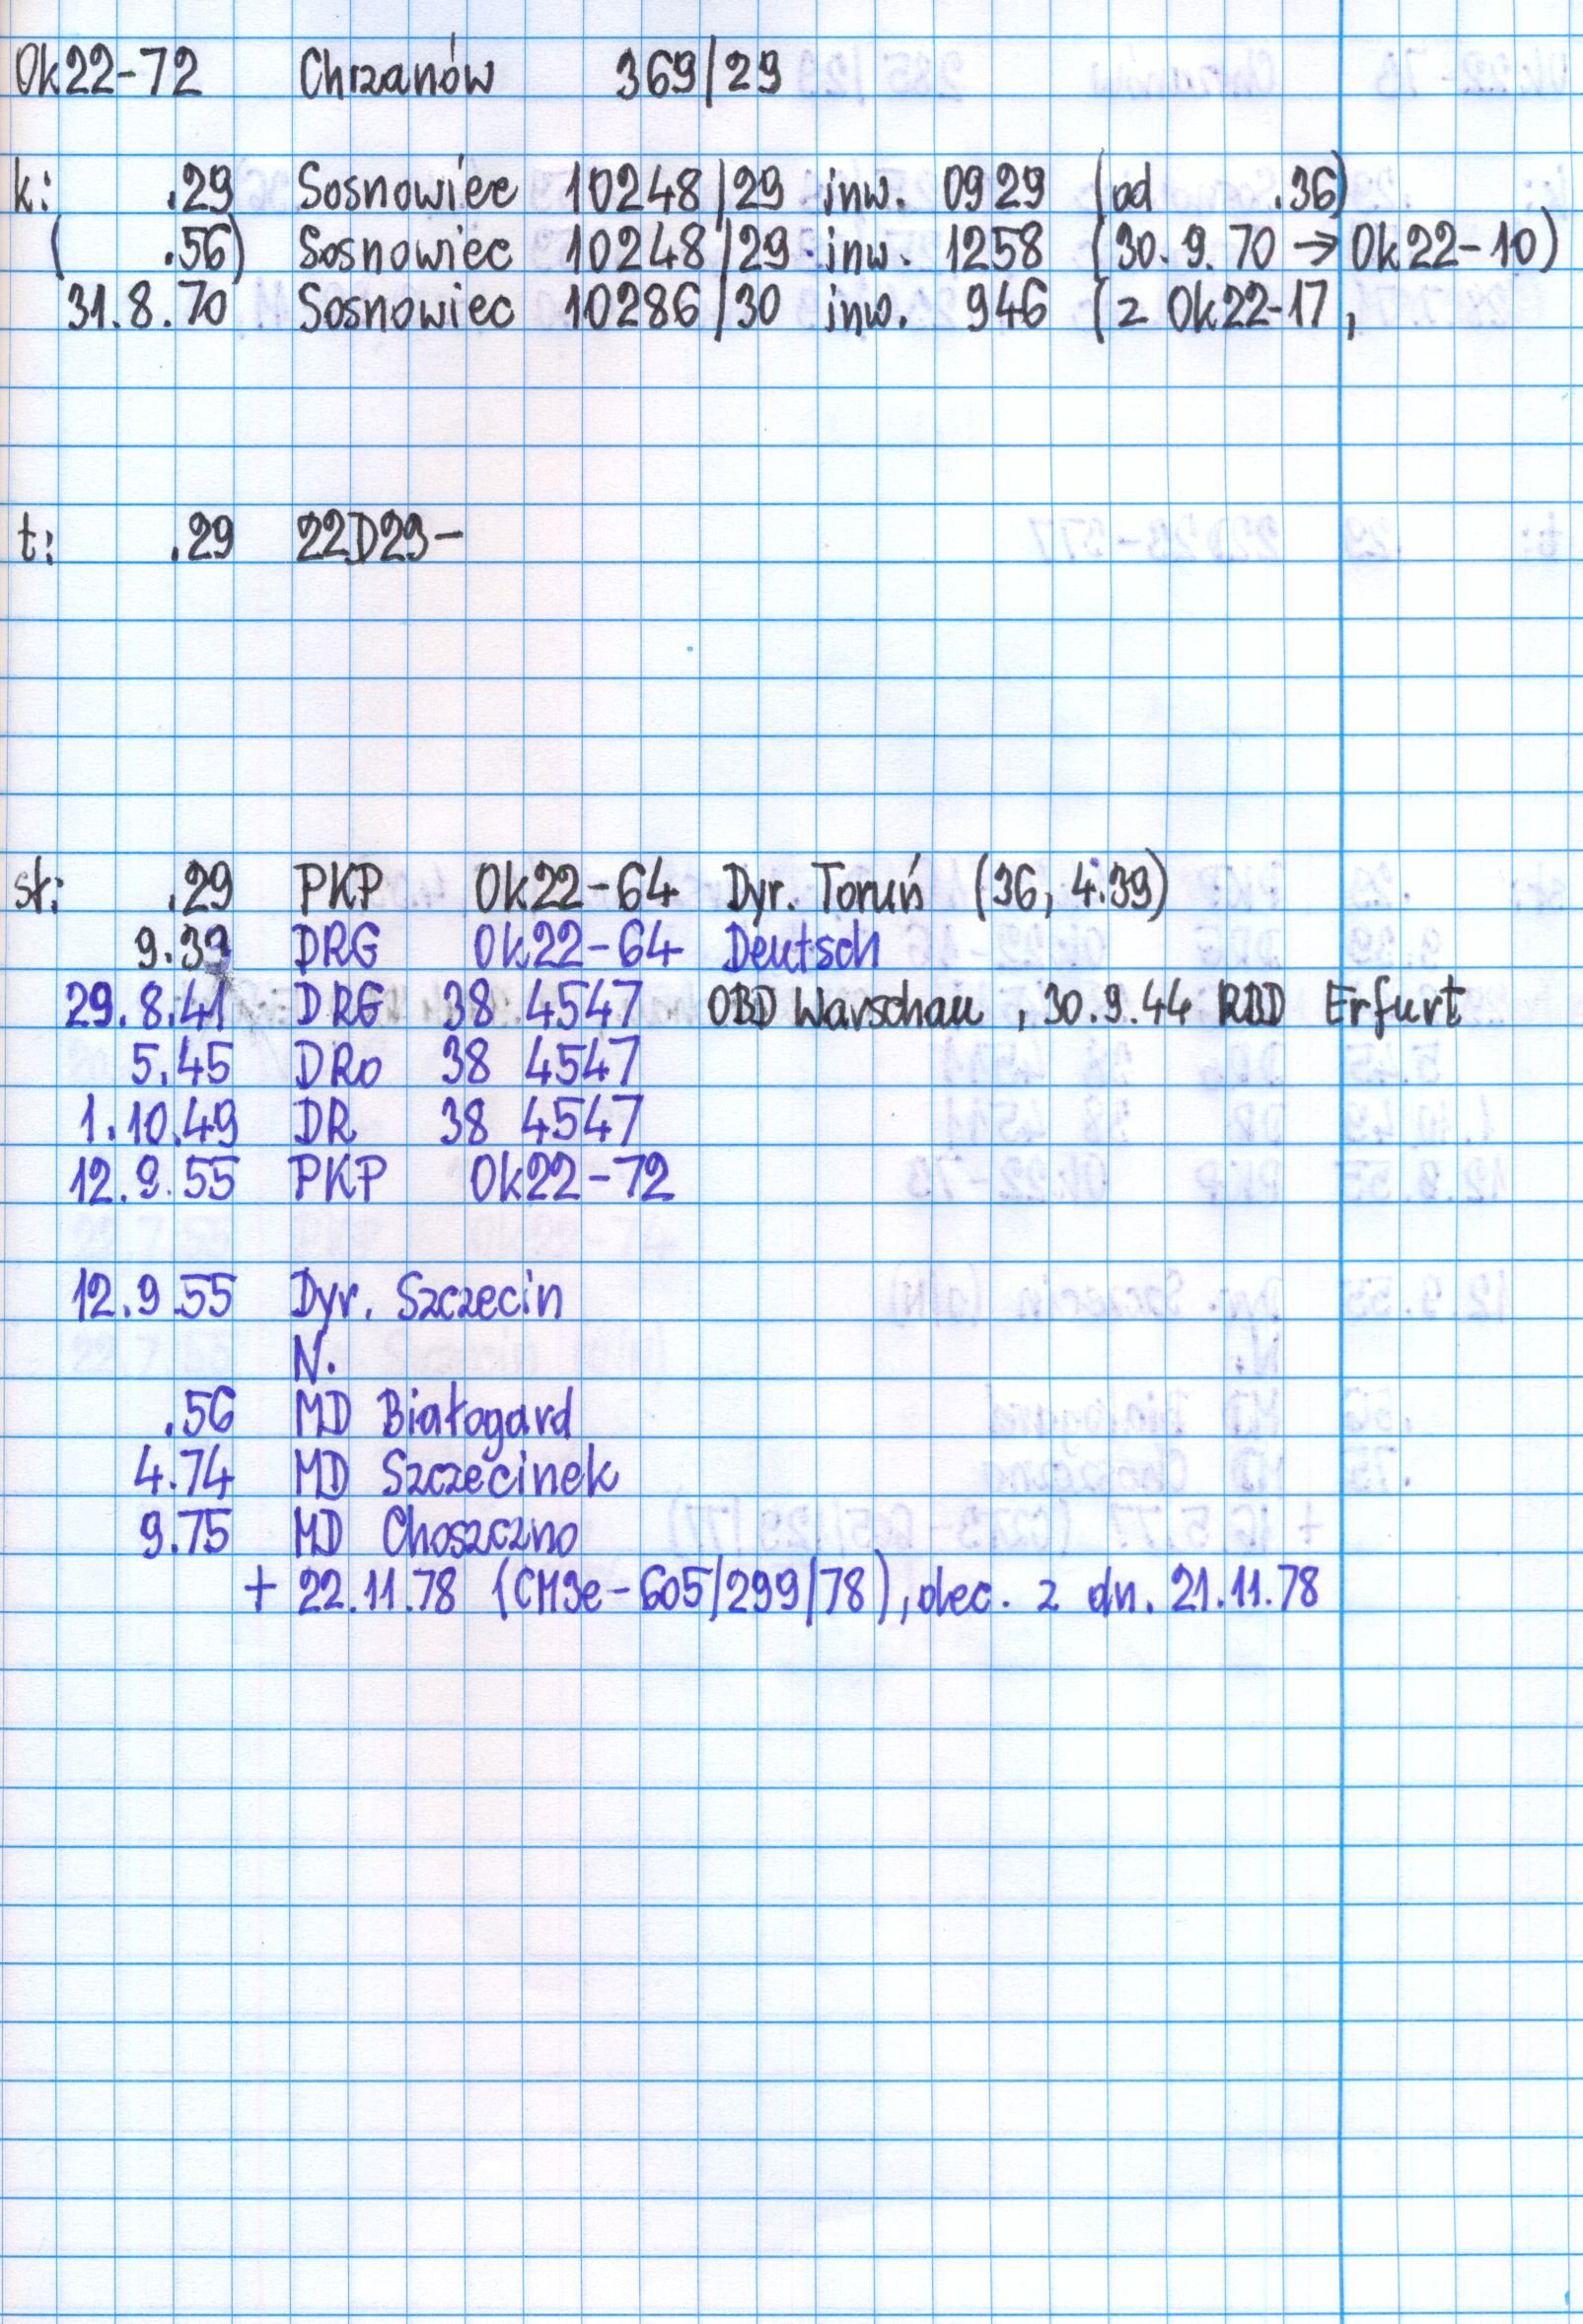 Ok22-72 Chrzanów 369/29
k: .29 Sosnowiec 10248/29 inw. 0929 (od .36)
( .56) Sosnowiec 10248/29 inw. 1258 (30.9.70 → Ok22-10)
31.8.70 Sosnowiec 10286/30 inw. 946 (z Ok22-17,
t: .29 22D29-
sł: .29 PKP Ok22-64 Dyr. Toruń (36, 4.39)
9.39 DRG Ok22-64 Deutsch
29.8.41 DRG 38 4547 OBD Warschau, 30.9.44 RBD Erfurt
5.45 DRo 38 4547
1.10.49 DR 38 4547
12.9.55 PKP Ok22-72
12.9.55 Dyr. Szczecin
N.
.56 MD Białogard
4.74 MD Szczecinek
9.75 MD Choszczno
+ 22.11.78 (CM3e-605/299/78), dec. z dn. 21.11.78